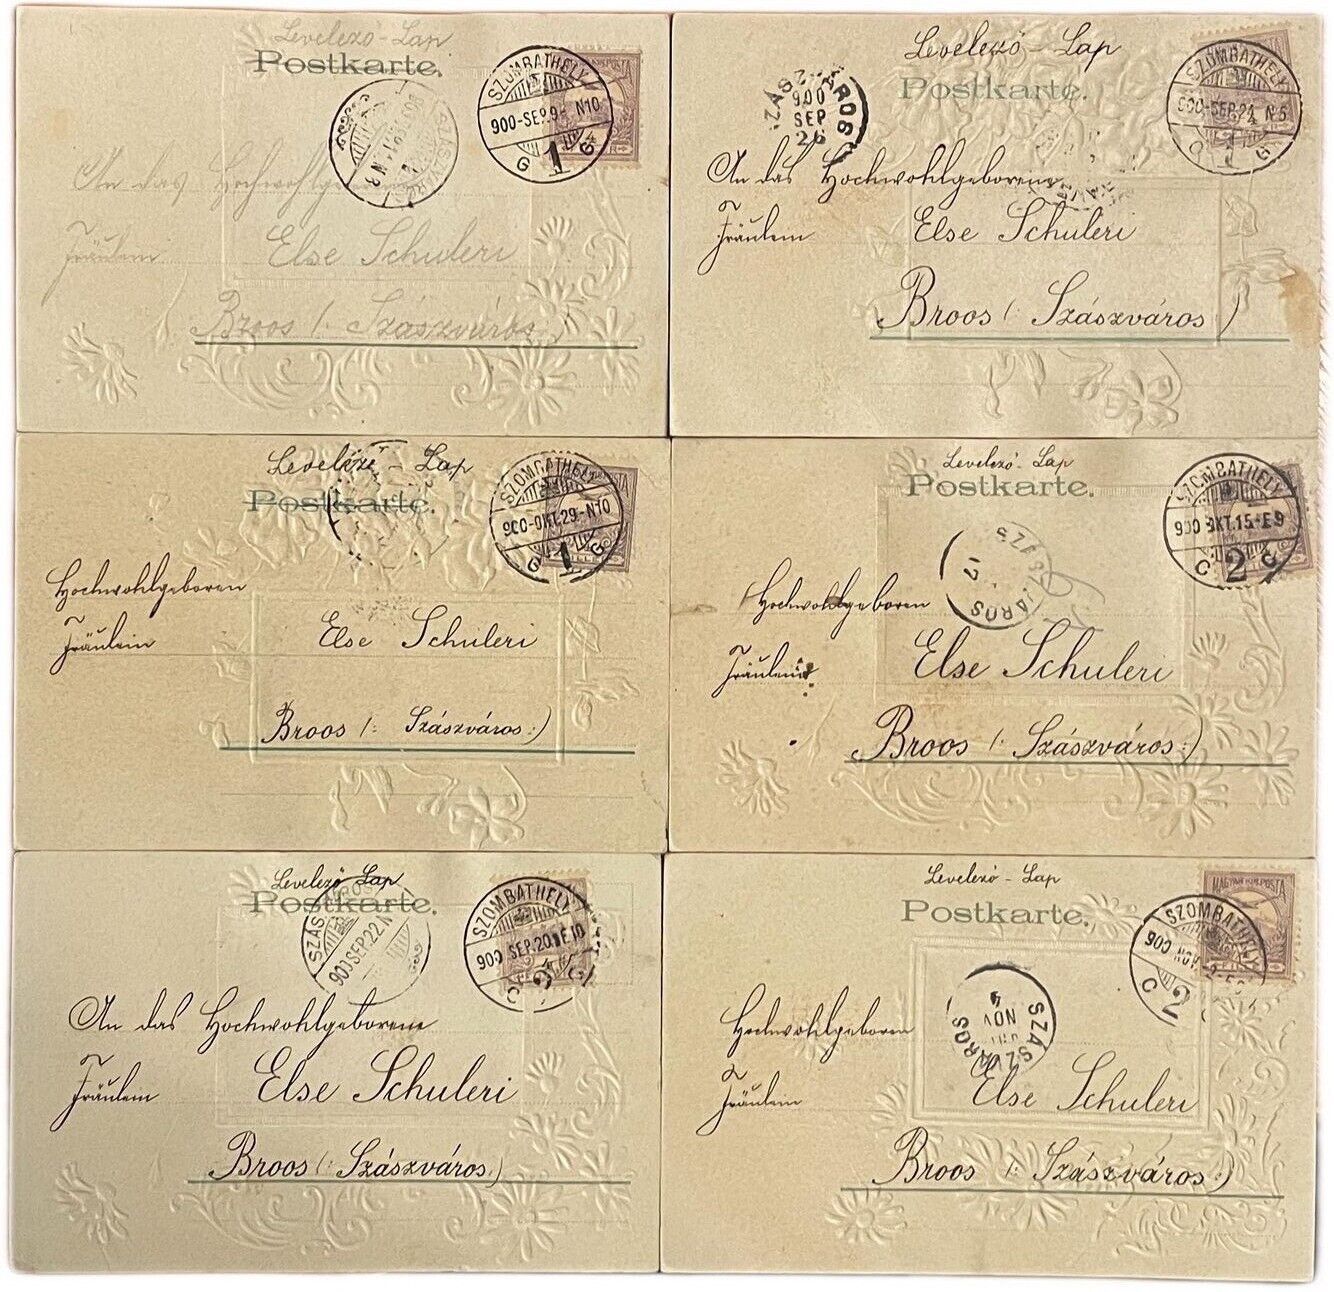 Levelező-Lap
Postkarte.
SZOMBATHELY
900-SEP.9- N10
G 1 G
An das Hochwohlgeborene
Fräulein Else Schuleri
Broos /: Szászváros :/
Levelező-Lap
Postkarte.
SZÁSZVÁROS
900
SEP
26
SZOMBATHELY
900-SEP.24 N5
1 G
An das Hochwohlgeborene
Fräulein Else Schuleri
Broos /: Szászváros /
Levelező-Lap
Postkarte.
SZOMBATHELY
900-OKT.29-N10
G 1 G
Hochwohlgeboren
Fräulein Else Schuleri
Broos /: Szászváros :/
Levelező-Lap
Postkarte.
SZÁSZVÁROS
17
SZOMBATHELY
900 OKT.15-E9
C 2 C
Hochwohlgeboren
Fräulein Else Schuleri
Broos /: Szászváros :/
Levelező Lap
Postkarte.
SZÁSZVÁROS
900 SEP.22.N
SZOMBATHELY
900 SEP.20. E10
C 2 C
An das Hochwohlgeborene
Fräulein Else Schuleri
Broos /: Szászváros /
Levelező-Lap
Postkarte.
MAGYAR KIR. POSTA
SZOMBATHELY
900 NOV
C 2
SZÁSZVÁROS
NOV
4
Hochwohlgeboren
Fräulein Else Schuleri
Broos /: Szászváros :/